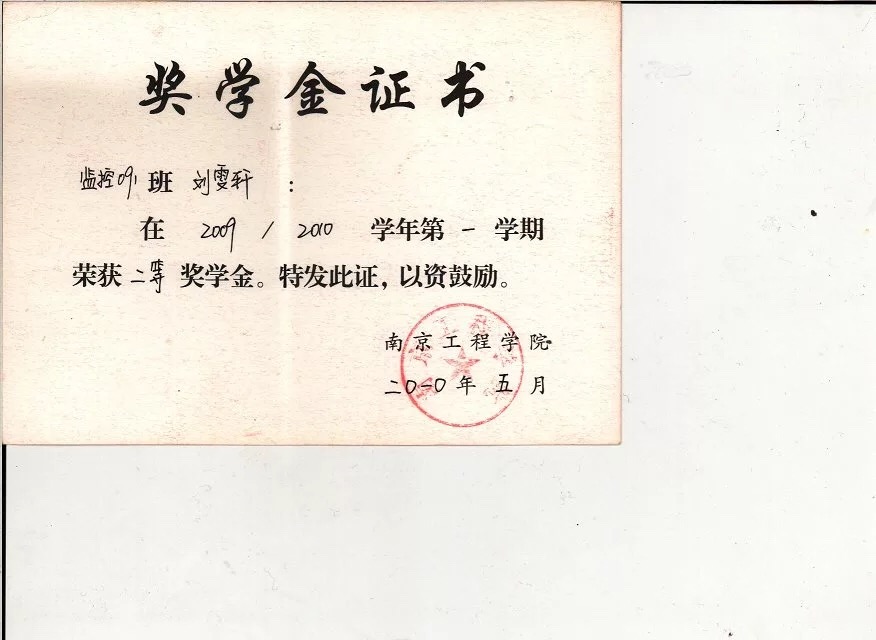 奖学金证书
监控091班 刘雯轩：
在 2009 / 2010 学年第一学期
荣获二等奖学金。特发此证，以资鼓励。
南京工程学院
二〇一〇年五月